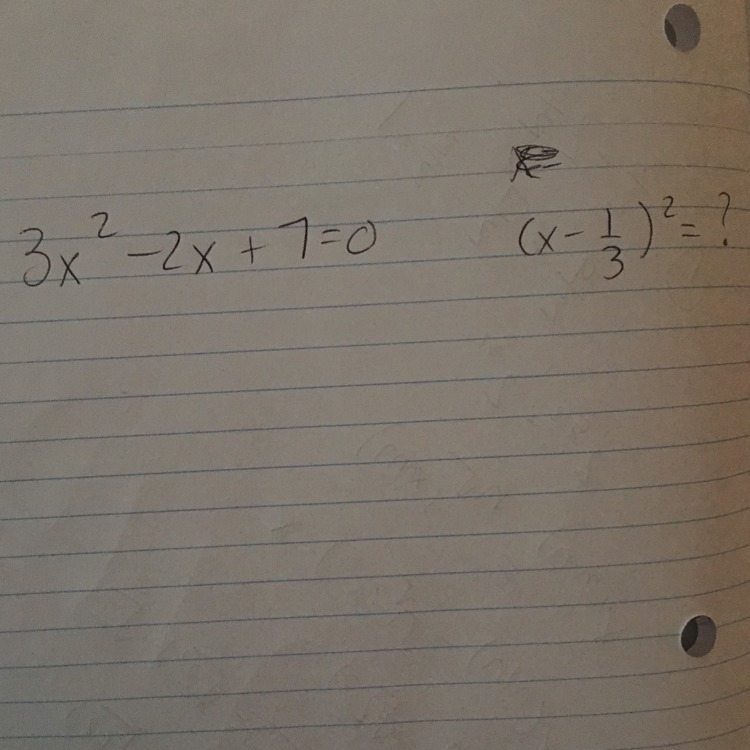 3x² -2x + 7=0
(x - 1/3)² = ?